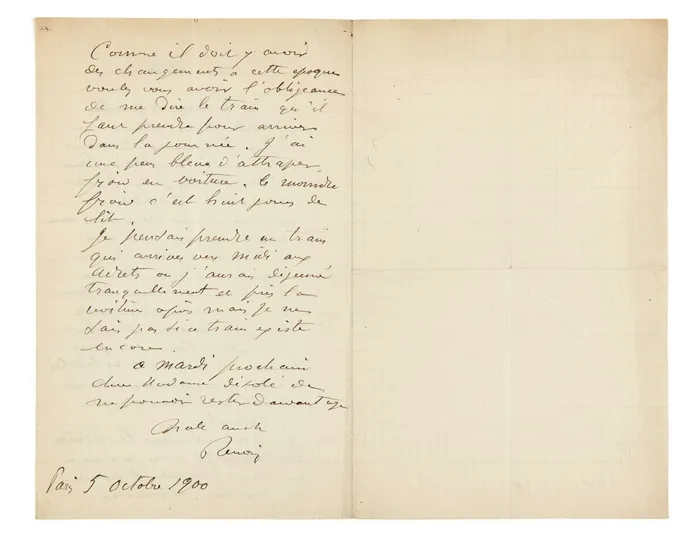 Comme il doit y avoir
des changements a cette epoque
voulez vous avoir l'obligeance
de me dire le train qu'il
faut prendre pour arriver
dans la journée. J'ai
une peur bleue d'attraper
froid en voiture. le moindre
froid c'est huit jours de
lit.
Je pensais prendre un train
qui arrives vers midi aux
ou j'aurais dejeuné
tranquillement et pris la
voiture après mais je ne
sais pas si ce train existe
encore.
a mardi prochain
chere Madame désolé de
ne pouvoir rester davantage
Renoir
Paris 5 octobre 1900